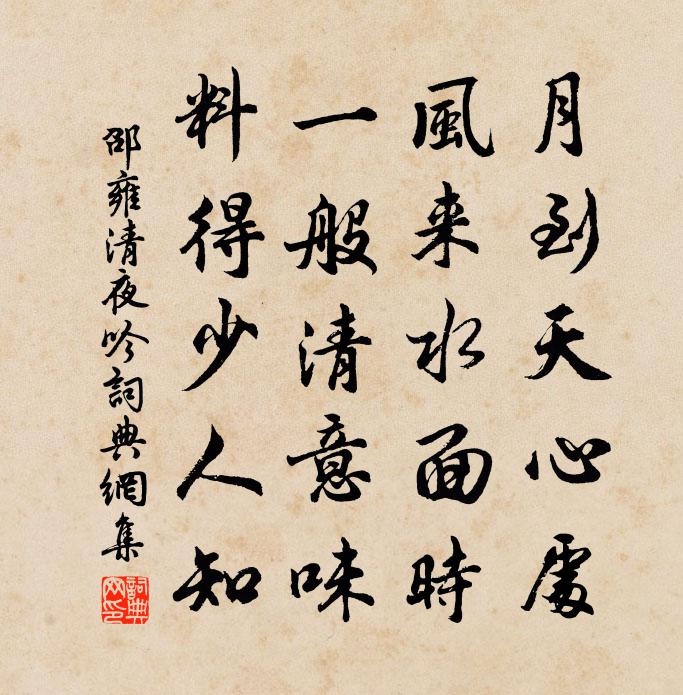 月到天心處
風来水面時
一般清意味
料得少人知
邵雍清夜吟詞典網集
詞典网印